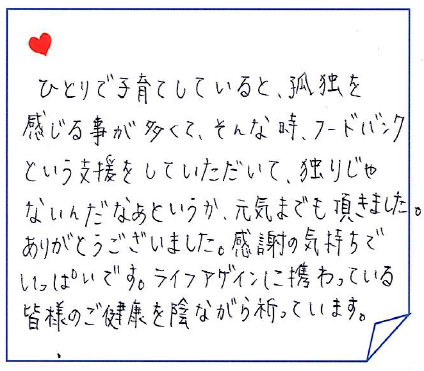 ひとりで子育てしていると、孤独を
感じる事が多くて、そんな時、フードバンク
という支援をしていただいて、独りじゃ
ないんだなあというか、元気までも頂きました。
ありがとうございました。感謝の気持ちで
いっぱいです。ライフアゲインに携わっている
皆様のご健康を陰ながら祈っています。